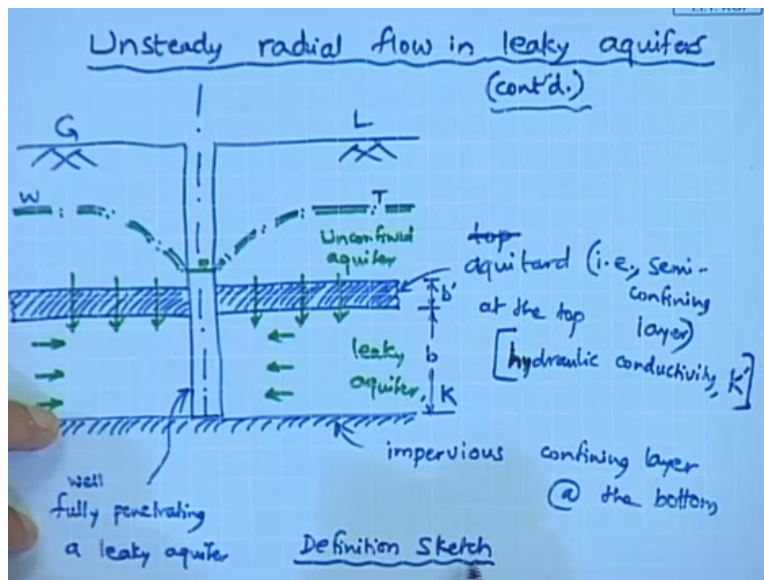 Unsteady radial flow in leaky aquifers
(cont'd.)
G L
W T
Unconfined
aquifer
top
aquitard (i.e., semi-
confining
at the top layer)
[hydraulic conductivity, K']
b'
b
leaky
aquifer, K
impervious confining layer
@ the bottom
well
fully penetrating
a leaky aquifer
Definition Sketch